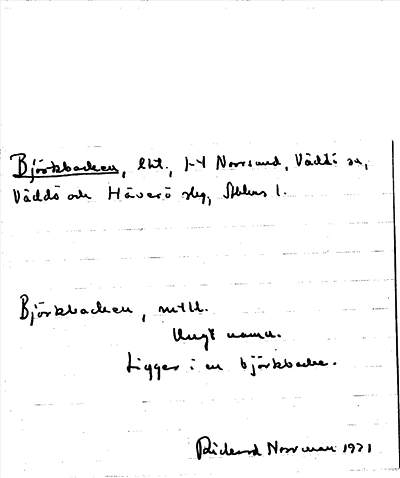 Björkbacken, lht., 1-4 Norrsund, Väddö sn,
Väddö och Häverö slg, Sthms l.
Björkbacken, mtld.
Ungt namn.
Ligger i en björkbacke.
Rickard Norrman 1921